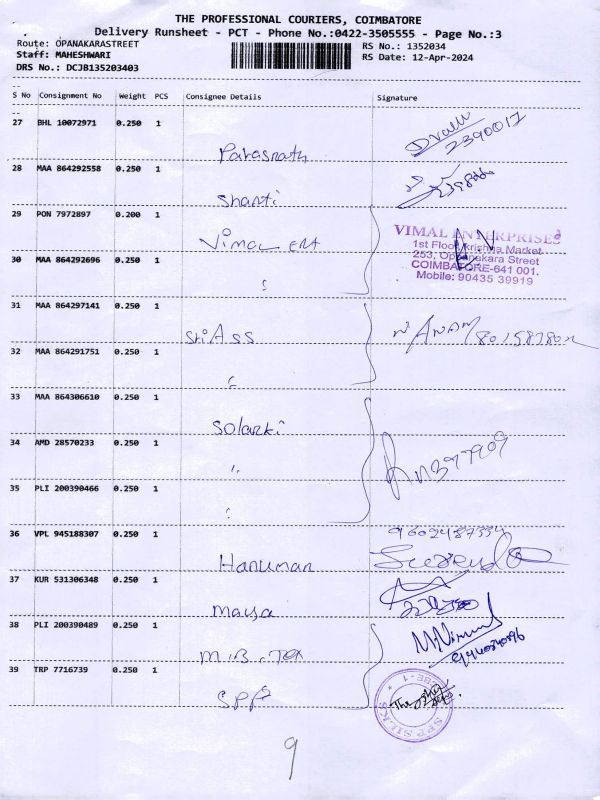 THE PROFESSIONAL COURIERS, COIMBATORE
Delivery Runsheet - PCT - Phone No.:0422-3505555 - Page No.:3
Route: OPANAKARASTREET
RS No.: 1352034
Staff: MAHESHWARI
RS Date: 12-Apr-2024
DRS No.: DCJB135203403
S No Consignment No Weight PCS Consignee Details Signature
27 BHL 10072971 0.250 1 Parasnath
2390017
28 MAA 864292558 0.250 1 Shanti
29 PON 7972897 0.200 1 Vimal ent
VIMAL ENTERPRISES
1st Floor, krishna Market
253, Oppanakara Street
COIMBATORE-641 001.
Mobile: 90435 39919
30 MAA 864292696 0.250 1 "
31 MAA 864297141 0.250 1 Sri Ass
32 MAA 864291751 0.250 1 "
33 MAA 864306610 0.250 1 Solanki
34 AMD 28570233 0.250 1 "
35 PLI 200390466 0.250 1 "
36 VPL 945188307 0.250 1 Hanuman
9602487334
37 KUR 531306348 0.250 1 Maya
38 PLI 200390489 0.250 1 M.B. Tex
39 TRP 7716739 0.250 1 SPP
SPP SILKS
9